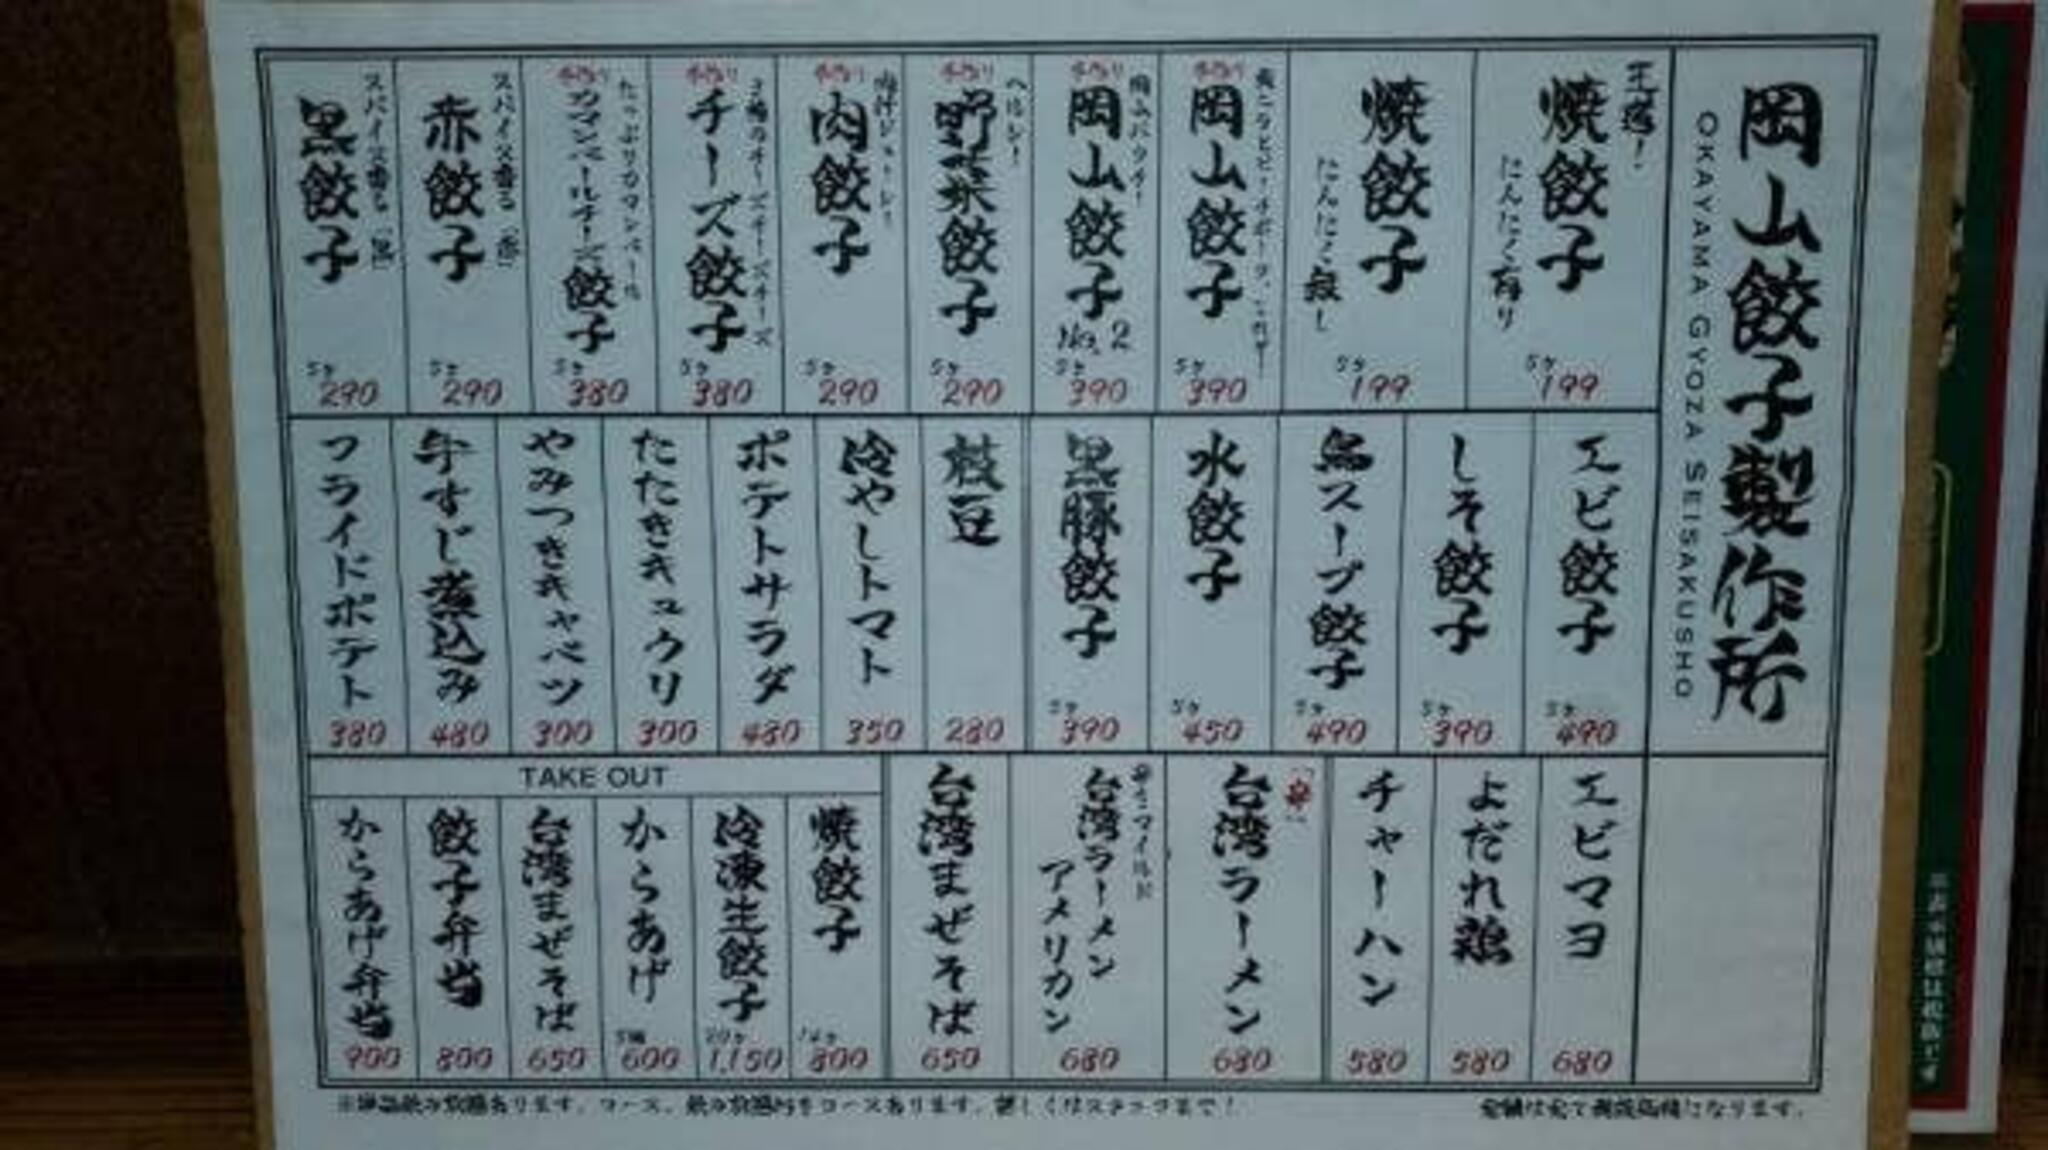 岡山餃子製作所
OKAYAMA GYOZA SEISAKUSHO
王道!
焼餃子
にんにく有り
5ヶ
199
焼餃子
にんにく無し
5ヶ
199
手作り
岡山餃子
5ヶ
390
手作り
岡山餃子
No.2
5ヶ
390
ヘルシー
手作り
野菜餃子
5ヶ
290
肉汁ジューシー
手作り
肉餃子
5ヶ
290
手作り
チーズ餃子
5ヶ
380
たっぷりカマンベール
手作り
カマンベールチーズ餃子
5ヶ
380
スパイス香る「赤」
赤餃子
5ヶ
290
スパイス香る「黒」
黒餃子
5ヶ
290
エビ餃子
5ヶ
490
しそ餃子
5ヶ
390
鳥スープ餃子
5ヶ
490
水餃子
5ヶ
450
黒豚餃子
5ヶ
390
枝豆
280
冷やしトマト
350
ポテトサラダ
480
たたきキュウリ
300
やみつきキャベツ
300
牛すじ煮込み
480
フライドポテト
380
エビマヨ
680
よだれ鶏
580
チャーハン
580
台湾ラーメン
680
台湾ラーメン
アメリカン
680
台湾まぜそば
650
TAKE OUT
焼餃子
800
冷凍生餃子
20ヶ
1,150
からあげ
5個
600
台湾まぜそば
650
餃子弁当
800
からあげ弁当
900